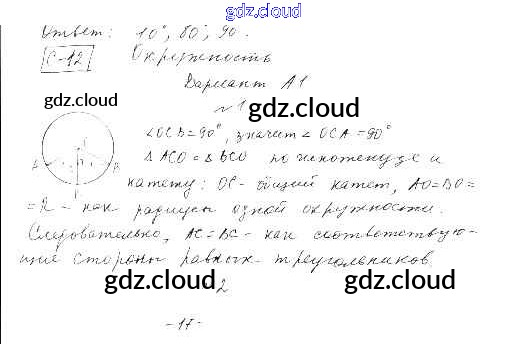 gdz.cloud
Ответ: 10°, 80°, 90°.
С-12 Окружность
Вариант А1
gdz.cloud gdz.cloud
№1
∠OCB = 90°, значит ∠OCA = 90°
Δ ACO = Δ BCO по гипотенузе и
катету: OC - общий катет, AO = BO =
= R - как радиусы одной окружности.
Следовательно, AC = BC - как соответствую-
щие стороны равных треугольников.
gdz.cloud gdz.cloud
2
-17-